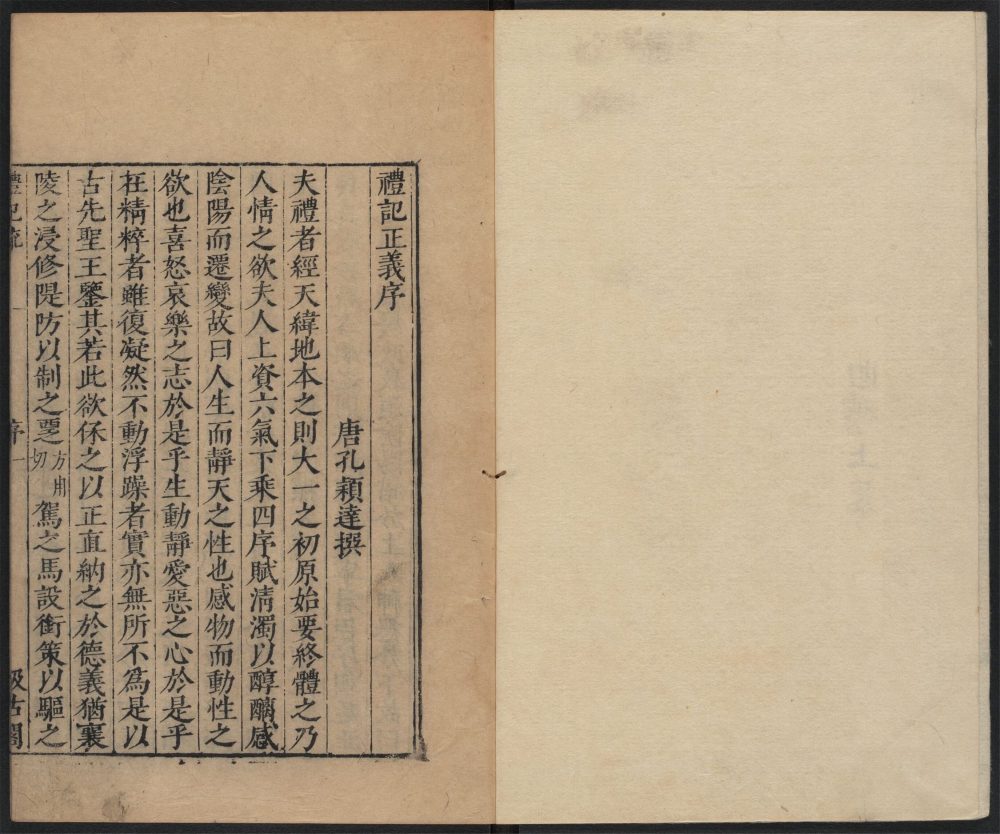 禮記正義序
唐孔穎達撰
夫禮者經天緯地本之則大一之初原始要終體之乃
人情之欲夫人上資六氣下乘四序賦清濁以醇醨感
陰陽而遷變故曰人生而靜天之性也感物而動性之
欲也喜怒哀樂之志於是乎生動靜愛惡之心於是乎
在精粹者雖復凝然不動浮躁者實亦無所不為是以
古先聖王鑒其若此欲保之以正直納之於德義猶襄
陵之浸修隄防以制之覂方用切駕之馬設銜策以驅之
禮記疏 序 一 汲古閣